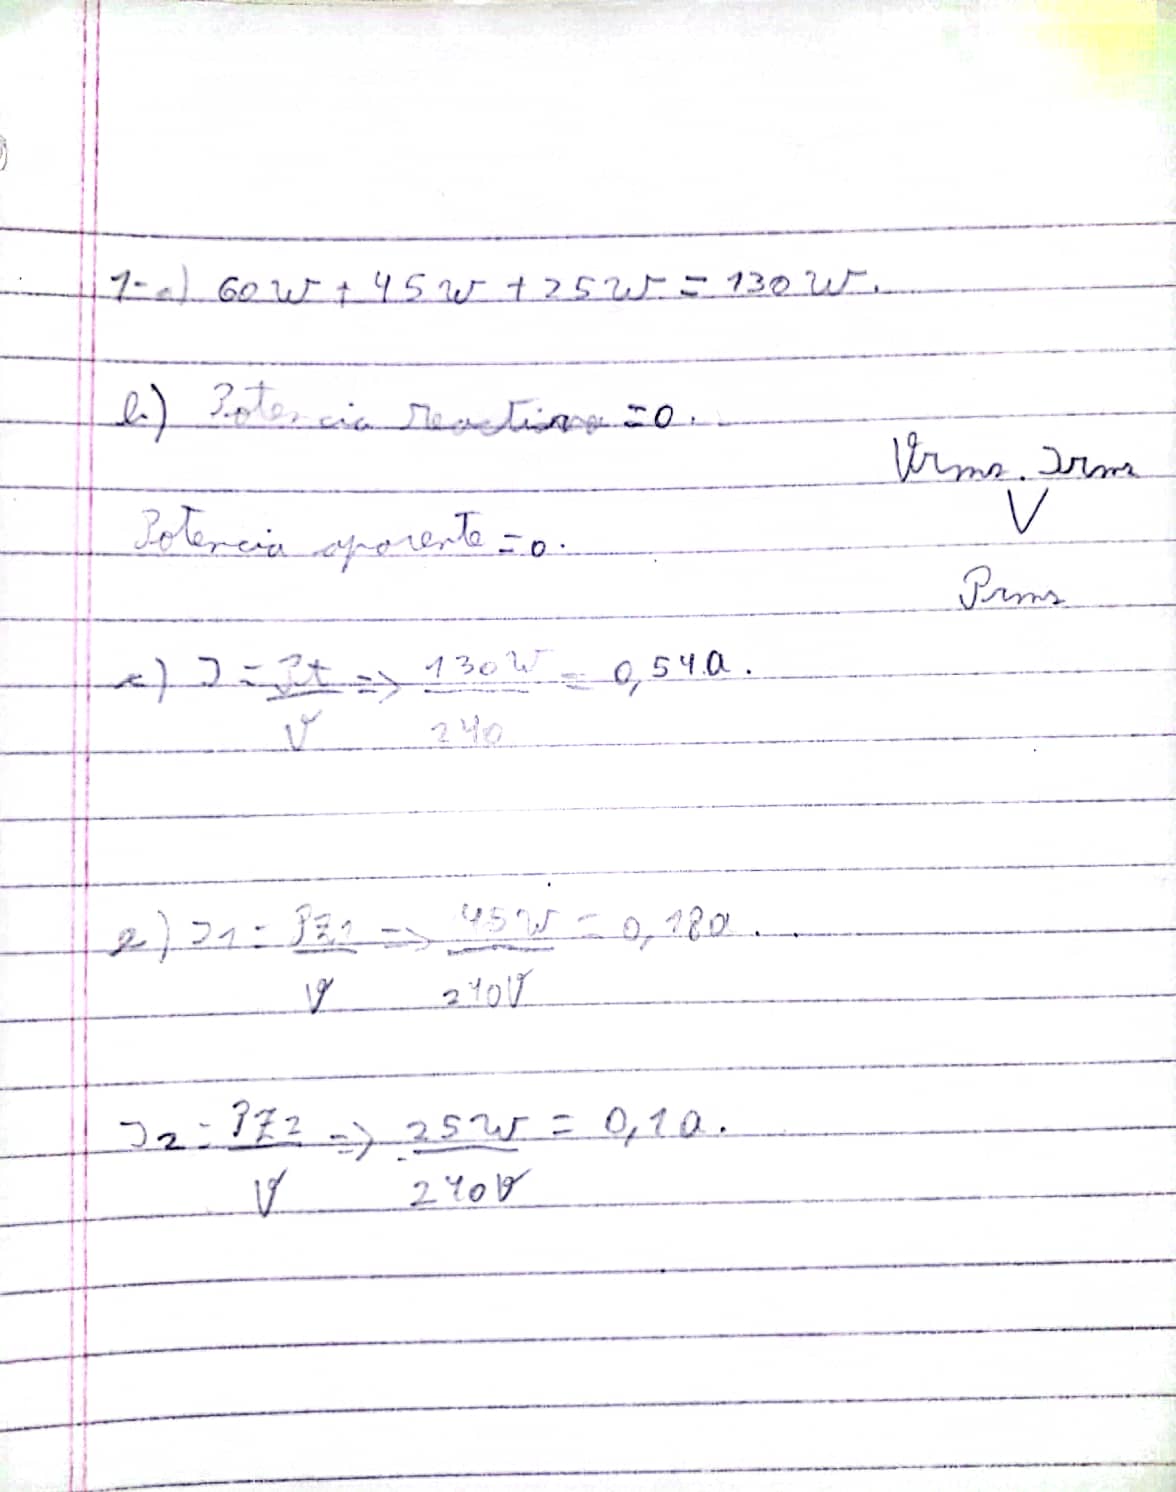 1-a) 60W + 45W + 25W = 130W.
b) Potencia reactiva = 0.
Vrms. Irms
V
Potencia aparente = 0.
Prms
c) I = Pt / V => 130W / 240 = 0,54a.
e) I1 = PZ1 / V => 45W / 240V = 0,18a.
I2 = PZ2 / V => 25W / 240V = 0,1a.